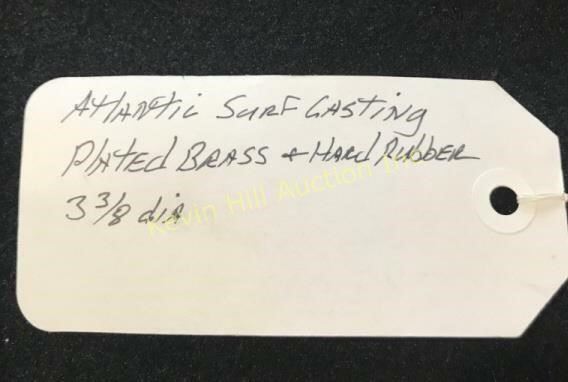 Atlantic Surf Casting
Plated Brass + Hard Rubber
3 3/8 dia
Kevin Hill Auction Inc